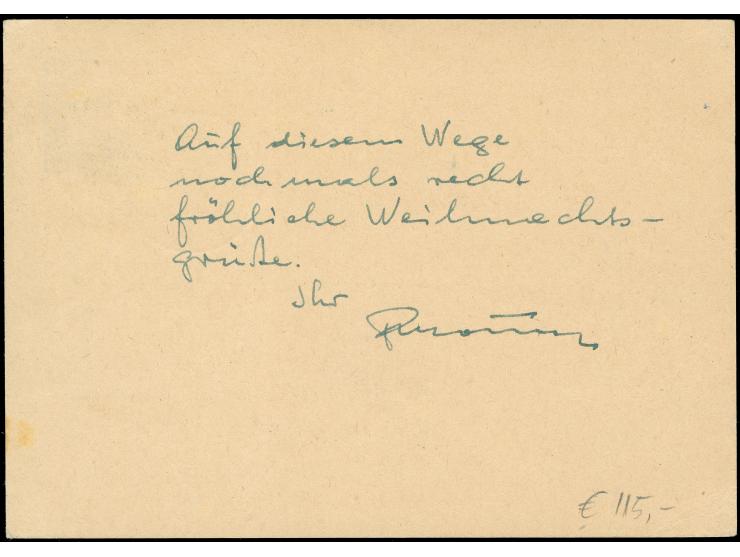 Auf diesem Wege
nochmals recht
fröhliche Weihnachts-
grüße.
Ihr
€ 115,-